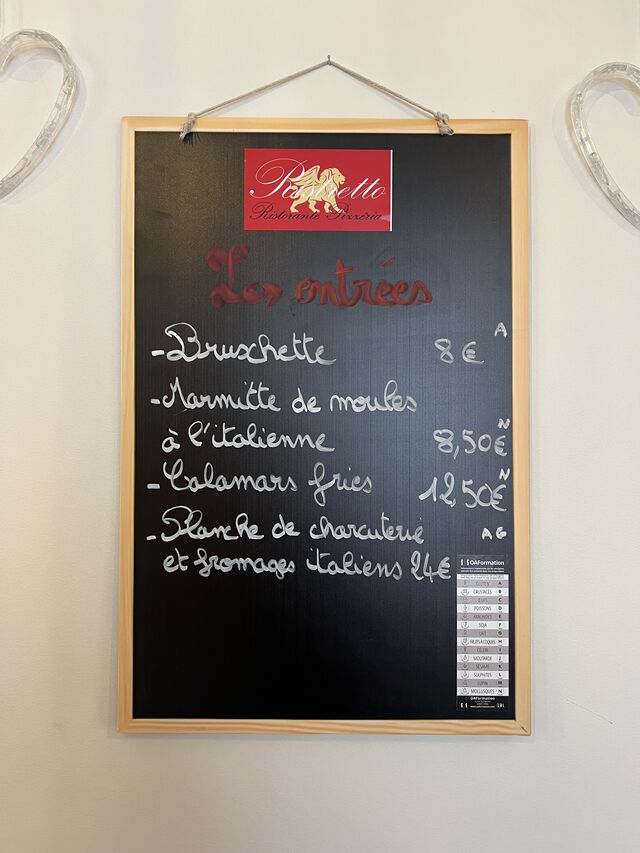 Ristretto
Ristorante Pizzéria
Les entrées
- Bruschette 8€ A
- Marmitte de moules
à l'italienne 8,50€ N
- Calamars fries 12,50€ N
- Planche de charcuterie A G
et fromages italiens 24€
OAFormation
GLUTEN A
CRUSTACÉS B
ŒUFS C
POISSONS D
ARACHIDES E
SOJA F
LAIT G
FRUITS À COQUES H
CÉLERI I
MOUTARDE J
SÉSAME K
SULFITES L
LUPIN M
MOLLUSQUES N
OAFormation